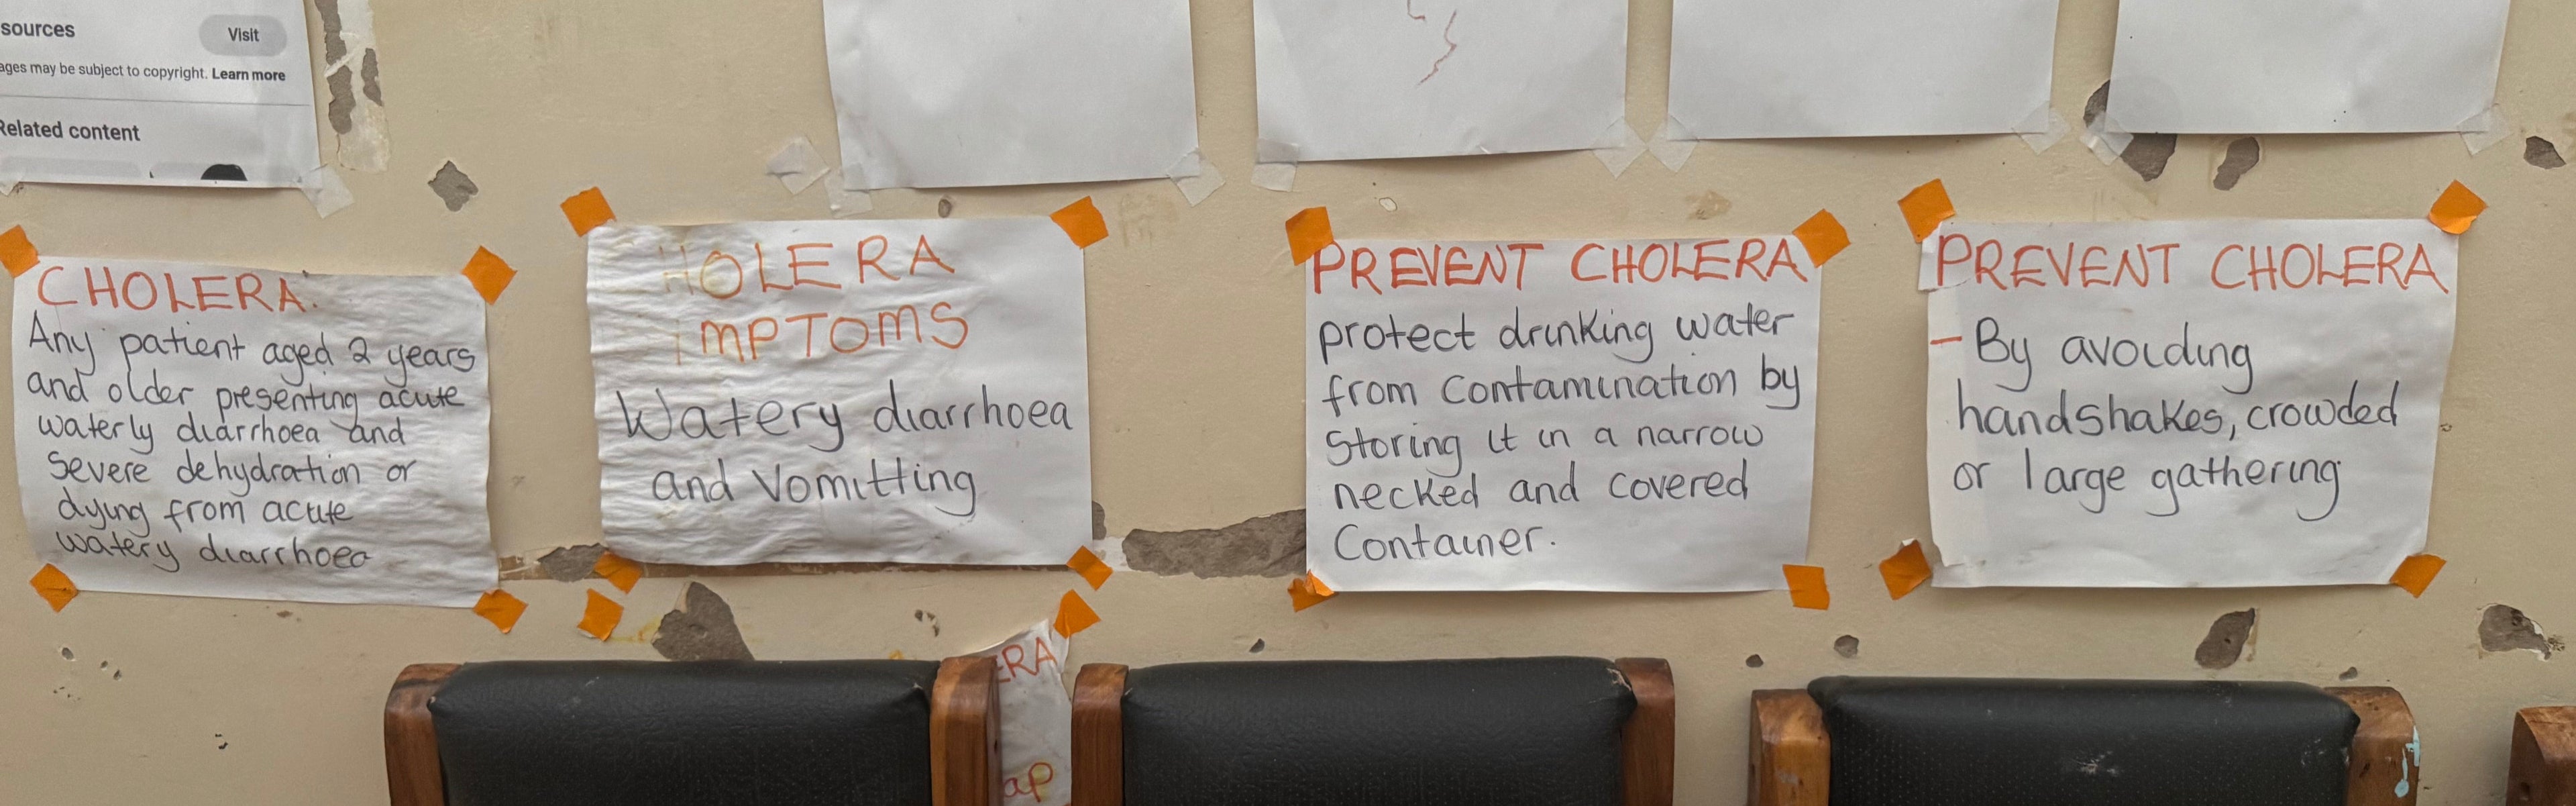 sources
Visit
ages may be subject to copyright. Learn more
Related content
CHOLERA.
Any patient aged 2 years
and older presenting acute
waterly diarrhoea and
severe dehydration or
dying from acute
watery diarrhoea
HOLERA
MPTOMS
Watery diarrhoea
and Vomitting
PREVENT CHOLERA
protect drinking water
from contamination by
storing it in a narrow
necked and covered
Container.
PREVENT CHOLERA
- By avoiding
handshakes, crowded
or large gathering
ERA
ap